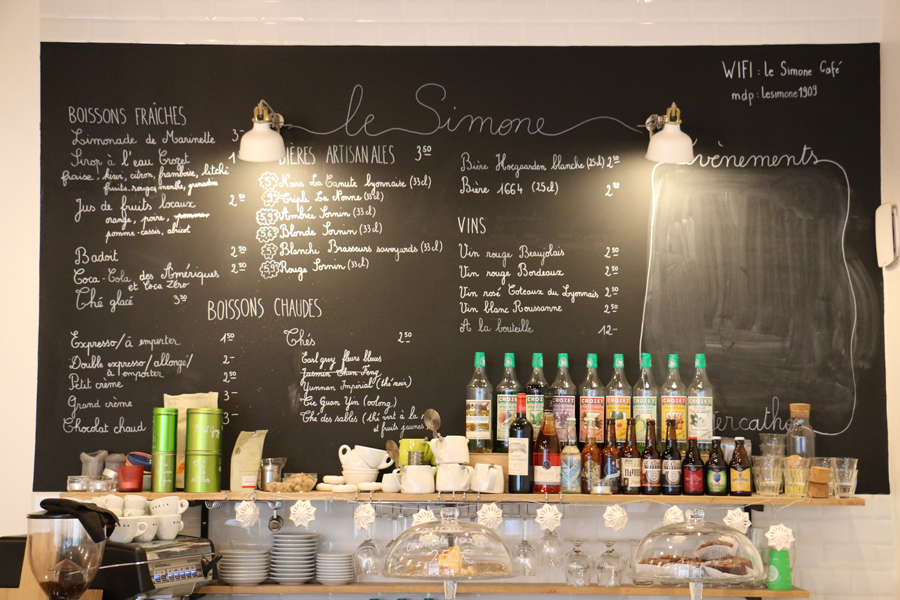 WIFI : Le Simone Café
mdp : Lesimone1909
le Simone
BOISSONS FRAÎCHES
Limonade de Marinette 3-
Sirop à l'eau Crozet 1
fraise, kiwi, citron, framboise, litchi
fruits rouges, menthe, grenadine
Jus de fruits locaux 2 50
orange, poire, pomme
pomme-cassis, abricot
Badoit 2 50
Coca-Cola des Amériques 2 50
et Coca Zéro
Thé glacé 3 50
BIÈRES ARTISANALES 3 50
Noire La Canute Lyonnaise (33cl)
Triple La Nonne (33cl)
Ambrée Sornin (33cl)
Blonde Sornin (33cl)
Blanche Brasseurs savoyards (33cl)
Rouge Sornin (33cl)
Bière Hoegaarden blanche (25cl) 2 80
Bière 1664 (25cl) 2 80
VINS
Vin rouge Beaujolais 2 50
Vin rouge Bordeaux 2 50
Vin rosé Coteaux du Lyonnais 2 50
Vin blanc Roussanne 2 50
A la bouteille 12-
Évènements
BOISSONS CHAUDES
Expresso/à emporter 1 50
Double expresso/allongé/ 2-
à emporter
Petit crème 2 50
Grand crème 3-
Chocolat chaud 3-
Thés 2 50
Earl grey fleurs bleues
Jasmin Chun Feng
Yunnan Impérial (thé noir)
Tie Guan Yin (oolong)
Thé des sables (thé vert à la
et fruits jaunes
CROZET
CROZET
CROZET
CROZET
CROZET
CROZET
CROZET